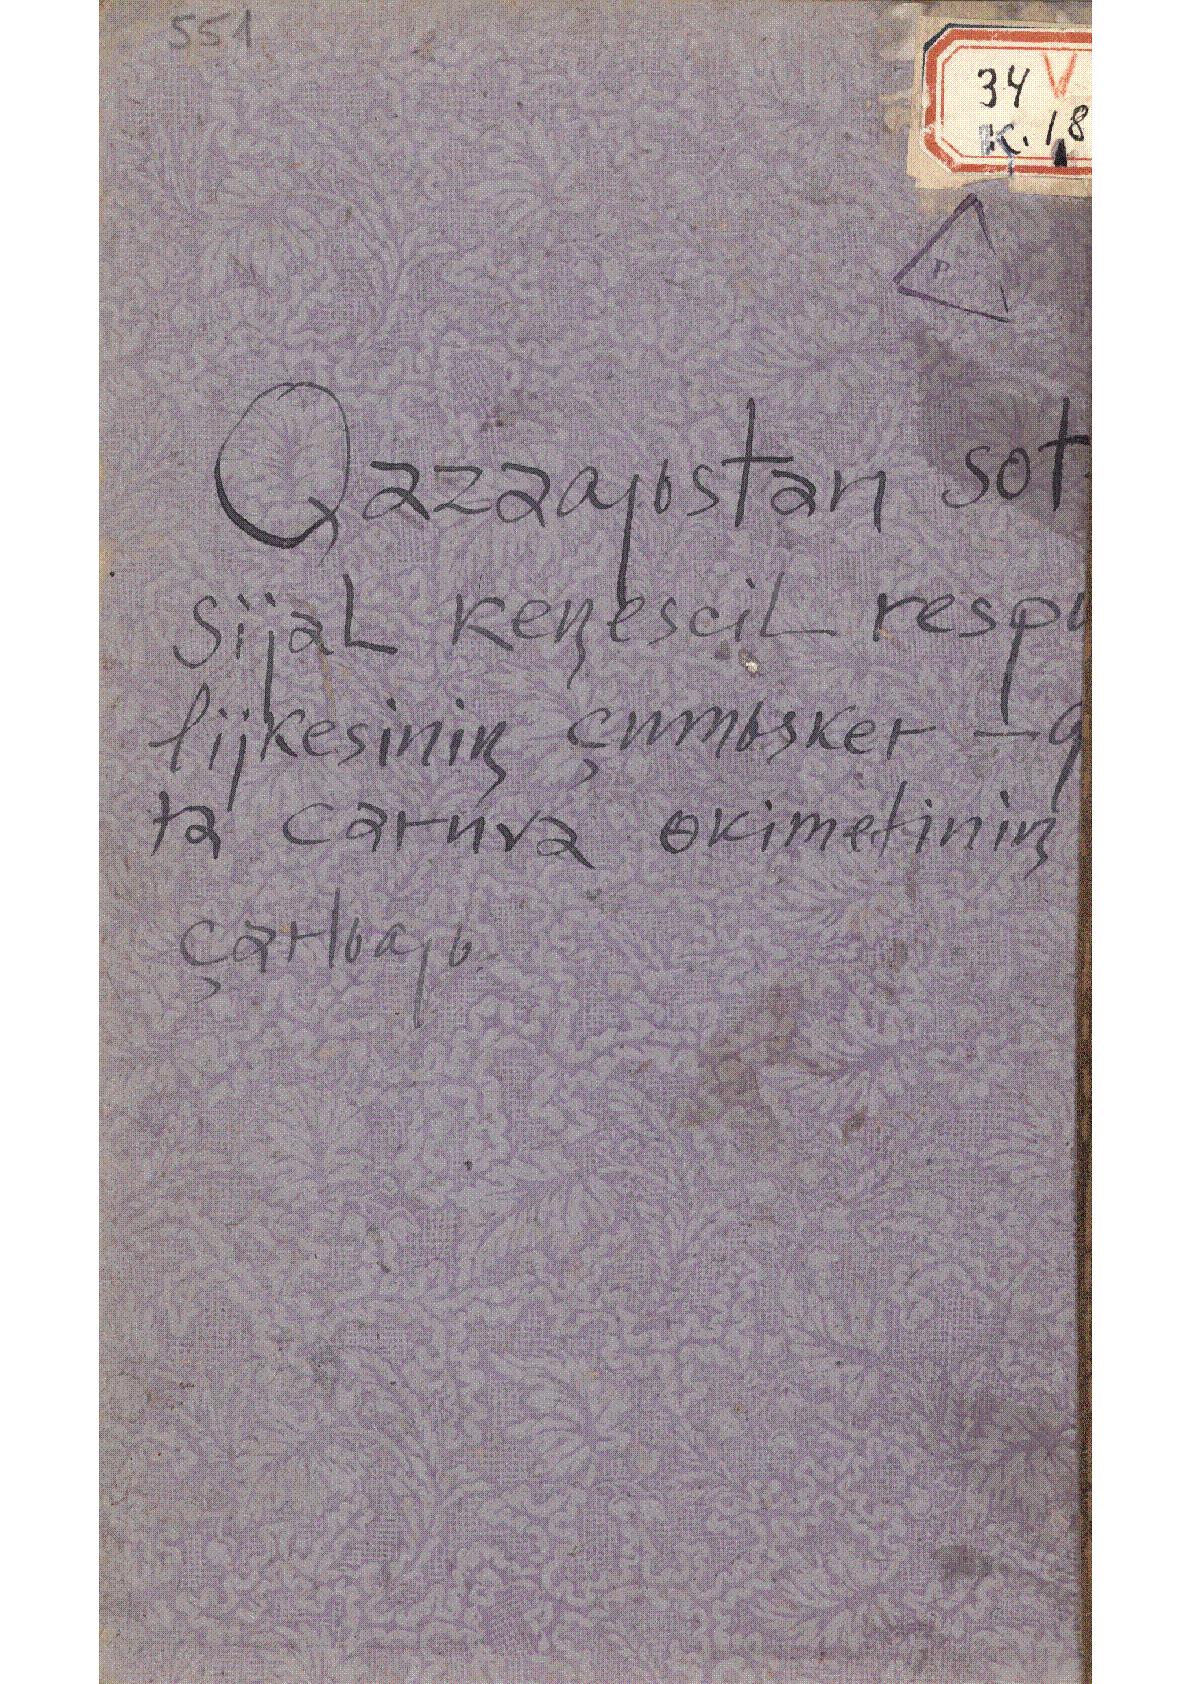 551
34 V
K. 18
P
Qazaƣьstan sot
sijal keꞑescil respu
lijkesiniꞑ çumьsker – q
ra caruva økimetiniꞑ
çarlьƣь.